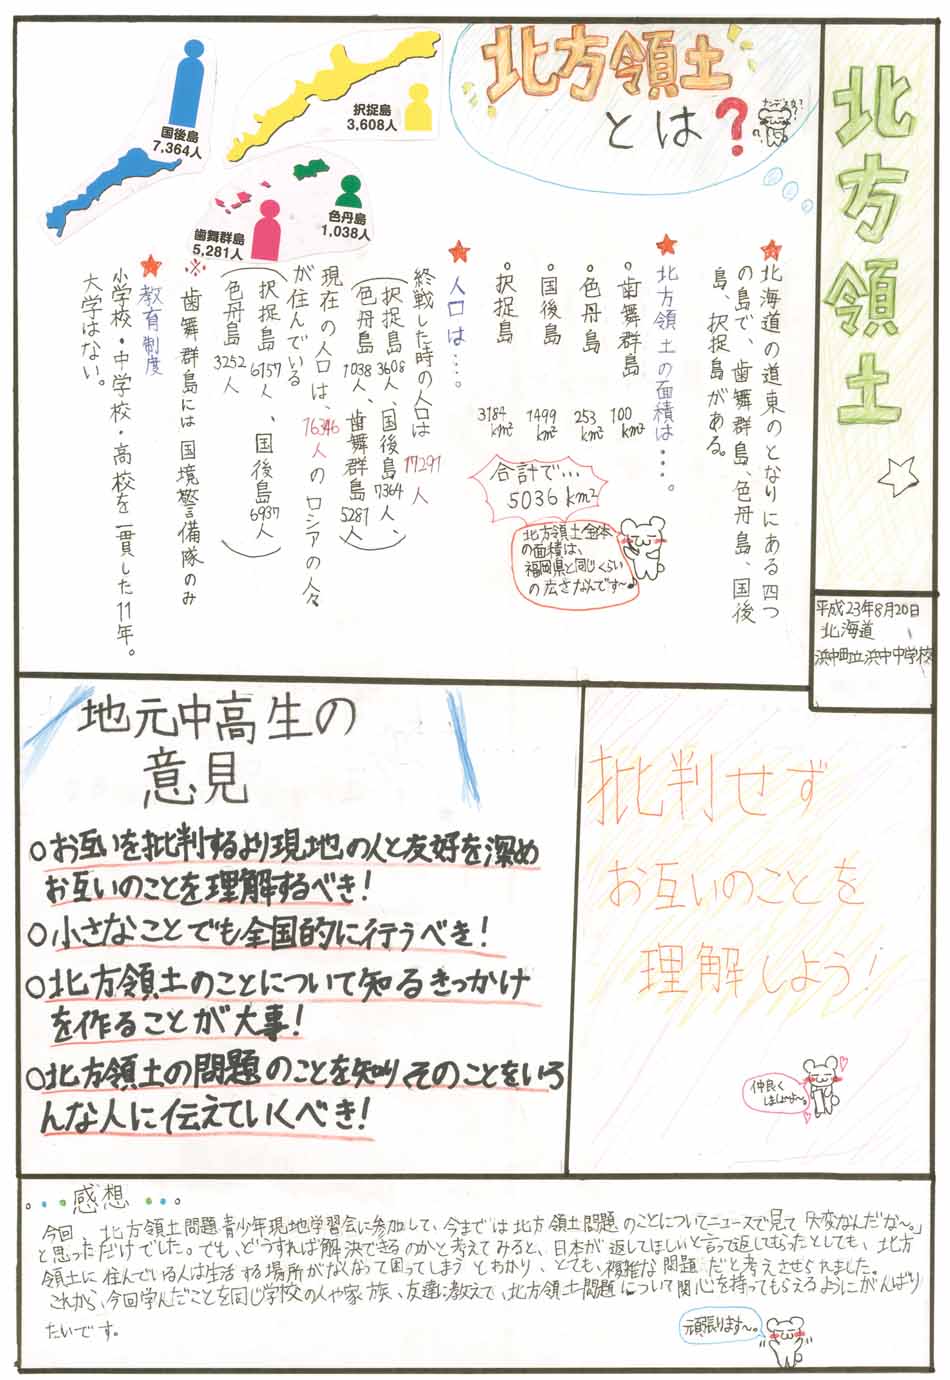 北方領土
平成23年8月20日
北海道
浜中町立浜中中学校
北方領土
とは?
ナンデスカ?
国後島
7,364人
択捉島
3,608人
色丹島
1,038人
歯舞群島
5,281人
★北海道の道東のとなりにある四つ
の島で、歯舞群島、色丹島、国後
島、択捉島がある。
★北方領土の面積は・・・。
・歯舞群島 100km²
・色丹島 253km²
・国後島 1499km²
・択捉島 3184km²
合計で…
5036km²
北方領土全体
の面積は、
福岡県と同じくらい
の広さなんです~♪
★人口は・・・。
終戦した時の人口は17291人
(択捉島3608人、国後島7364人、
色丹島1038人、歯舞群島5281人)
現在の人口は、16346人のロシアの人々
が住んでいる
(択捉島6157人、国後島6937人
色丹島3252人)
※歯舞群島には国境警備隊のみ
★教育制度
小学校・中学校・高校を一貫した11年。
大学はない。
地元中高生の
意見
○お互いを批判するより現地の人と友好を深め
お互いのことを理解するべき!
○小さなことでも全国的に行うべき!
○北方領土のことについて知るきっかけ
を作ることが大事!
○北方領土の問題のことを知り、そのことをいろ
んな人に伝えていくべき!
批判せず
お互いのことを
理解しよう!
仲良く
しましょーよ~。
・・・感想・・・。
今回、北方領土問題青少年現地学習会に参加して、今までは北方領土問題のことについてニュースで見て「大変なんだな~。」
と思っただけでした。でも、どうすれば解決できるのかと考えてみると、日本が返してほしいと言って返してもらったとしても、北方
領土に住んでいる人は生活する場所がなくなって困ってしまうとわかり、とても、複雑な問題だと考えさせられました。
これから、今回学んだことを同じ学校の人や家族、友達に教えて、北方領土問題について関心を持ってもらえるようにがんばり
たいです。
頑張ります~。